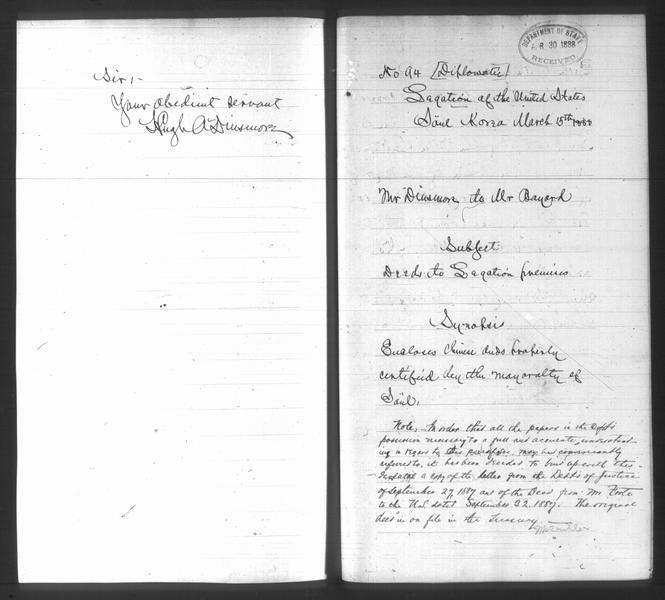 Sir,
Your obedient servant
Hugh A Dinsmore
DEPARTMENT OF STATE
30 1888
RECEIVED
No 94 [Diplomatic]
Legation of the United States
Söul Korea March 15th 1888
Mr Dinsmore to Mr Bayard
Subject
Deeds to Legation premises
Synopsis
Encloses Chinese deeds properly
certified by the mayoralty of
Söul.
Note: In order that all the papers in the Dept's
possession necessary to a full and accurate understand-
ing in regard to this purchase may be conveniently
referred to, it has been decided to bind up with this
Despatch a copy of the letter from the Dept of Justice
of September 27, 1887 and of the Deed from Mr Foote
to the U.S. dated September 22, 1887. The original
deed is on file in the Treasury.